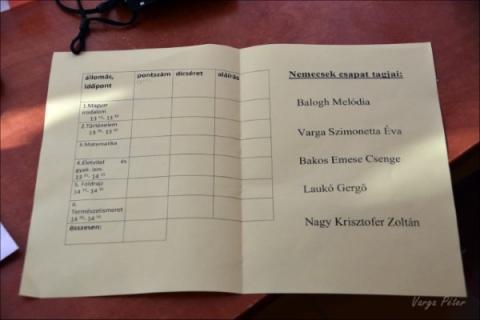 állomás, pontszám dicséret aláírás
időpont
1.Magyar
irodalom
2.Történelem
3.Matematika
4.Életvitel és
gyak. ism.
5. Földrajz
6.
Természetismeret
összesen:
Nemecsek csapat tagjai:
Balogh Melódia
Varga Szimonetta Éva
Bakos Emese Csenge
Laukó Gergő
Nagy Krisztofer Zoltán
Varga Péter